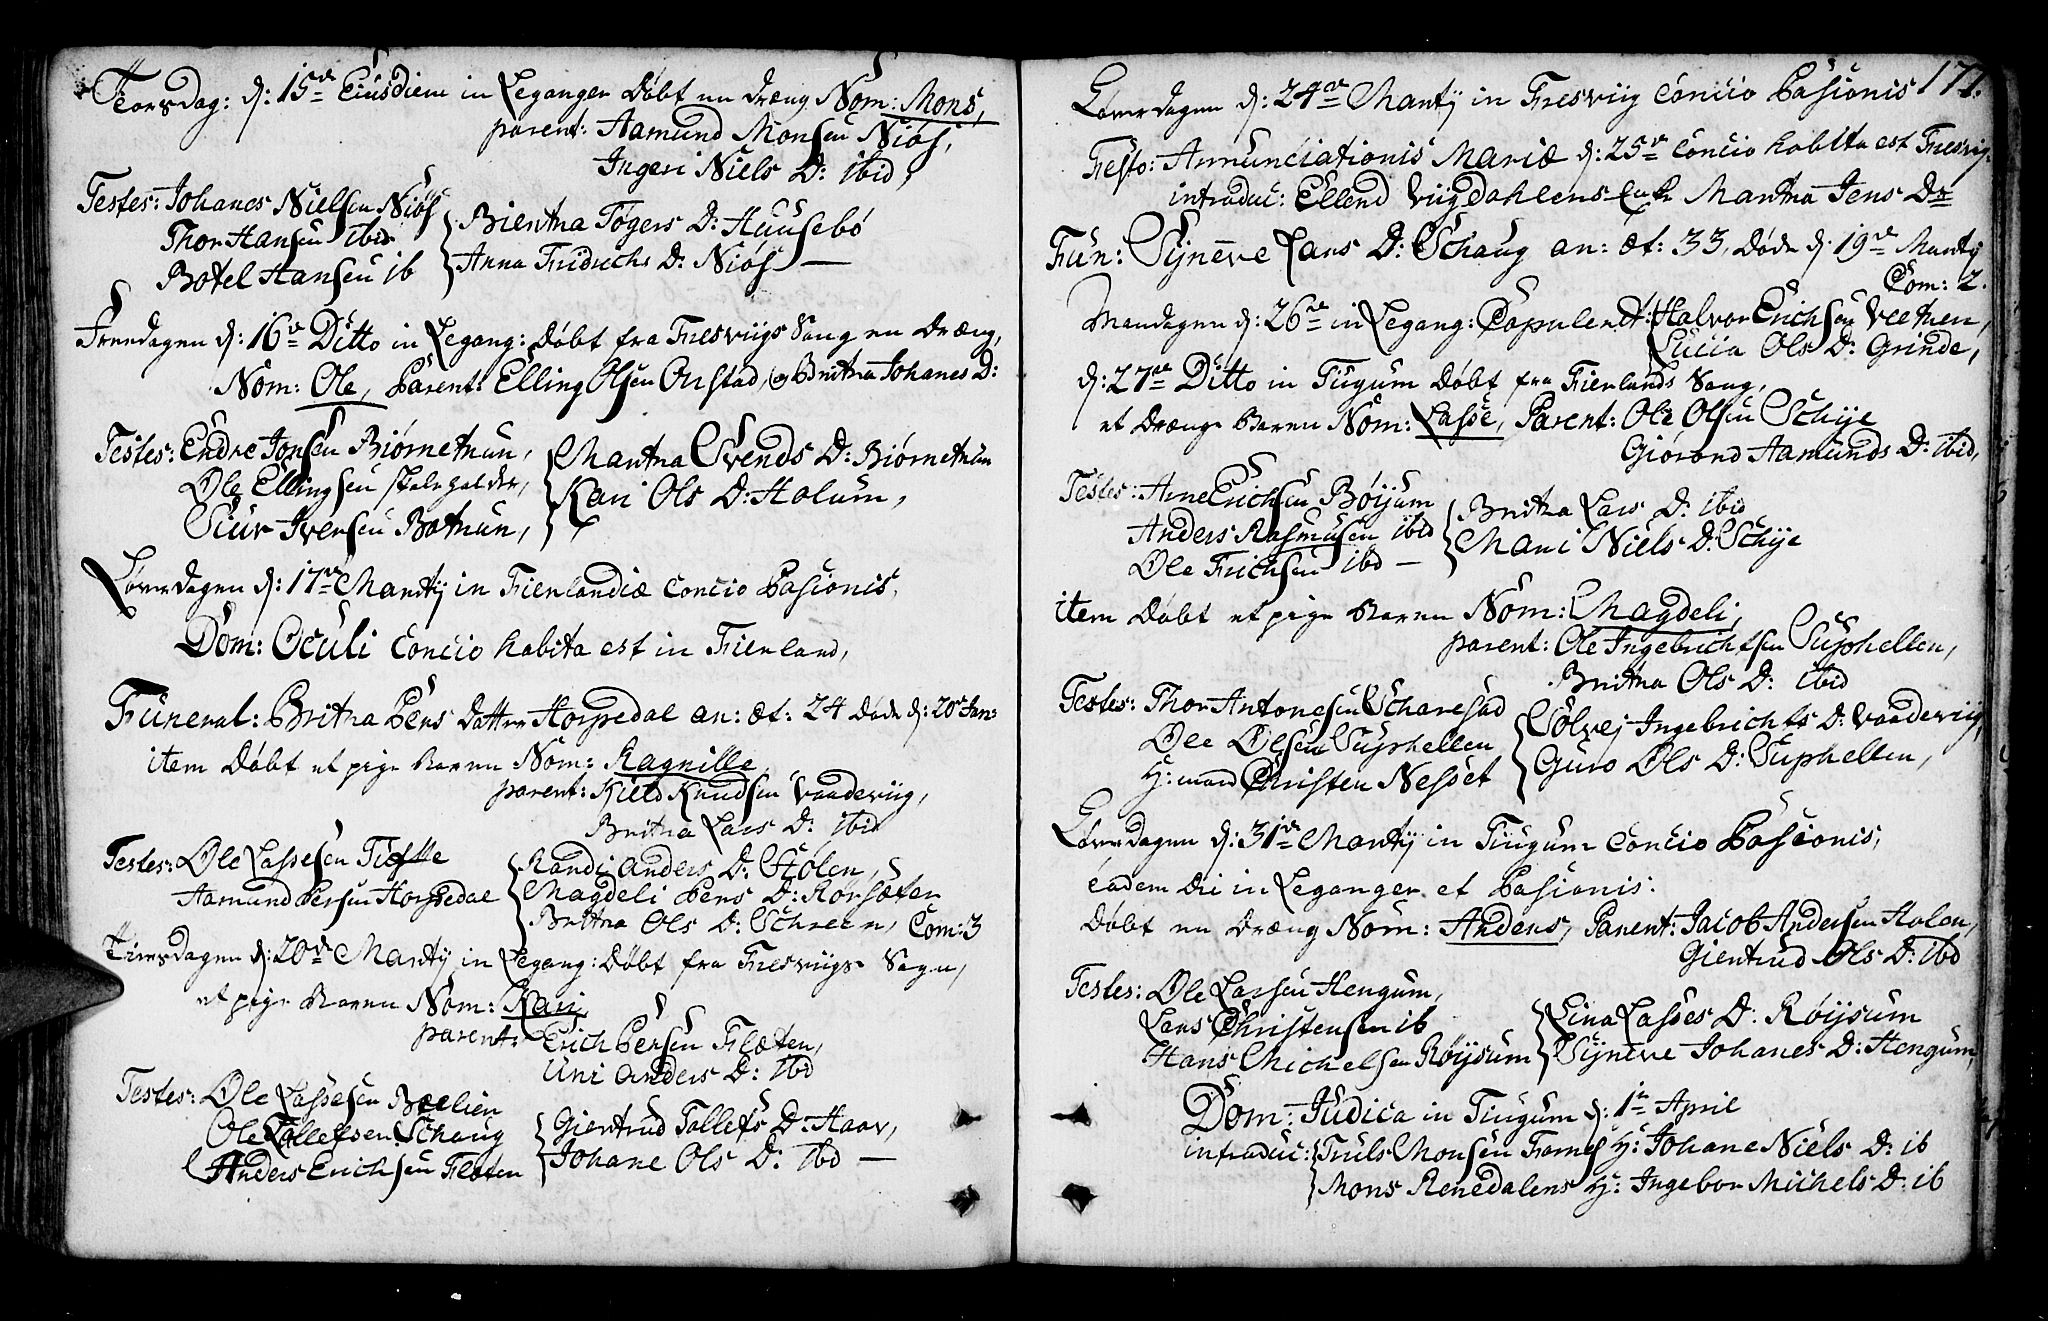 Torsdag: d: 15de Eiusdiem in Leganger Døbt en dræng Nom: Mons,
parent: Aamund Monsen Niøs,
Ingeri Niels D: ibid,
Testes: Johanes Nielsen Niøs
Thor Hansen ibid
Botel Hansen ib
Bieritha Togers D: Huusebo
Anna Fridrichs D: Niøs —
Freedagen d: 16de Ditto in Legang: døbt fra Fresviigs Song en dræng,
Nom: Ole, Parent: Elling Olsen Orstad, og Britha Johanes D:
Testes: Endre Jonsen Biørnetuun,
Ole Ellingsen
Siur Iversen Botnun,
Martha Svends D: Biørnetuun
Kari Ols D: Holum,
Løverdagen d: 17de Martij in Fierlandiæ Concio Pasionis,
Dom: Oculi Concio habita est in Fierland,
Funeral: Britha Pers datter Horpedal an: æt: 24 døde d: 20de Jan:
item døbt et pige Barn Nom: Ragnille,
parent: Kield Knudsen Vaadeviig,
Britha Lars D: ibid
Testes: Ole Lassesen
Aamund Persen Horpedal
Randi Anders D: Stølen,
Magdeli Pers D: Korsæter
Britha Ols D: Schreen, Com: 3
Tirsdagen d: 20de Martij in Legang: Døbt fra Fresviigs Sogn,
et pige Barn Nom: Kari
parent: Erich Persen Flæten,
Uni Anders D: ibid
Testes: Ole Lassesen Bælien
Ole Tollefsen Schaug
Anders Erichsen Fløten
Giertrud Tollefs D: Haav,
Johane Ols D: ibd —
171.
Løverdagen d: 24de Martij in Fresviig Concio Pasionis
Festo: Annunciationis Mariæ d: 25de Concio habita est Fresvig.
introduc: Ellend Viigdahlens Martha Jens Dr
Fun: Synneve Lars D: Schaug an: æt: 33, døde d: 19de Martij
Com: 2.
Mandagen d: 26de in Legang: Copulerdt: Halvor Erichsen Veetuen,
Lucia Ols D: Grinde,
d: 27de Ditto in Tugum døbt fra Fierlands Song,
et drænge Barn Nom: Lasse, Parent: Ole Olsen Schije
Giørond Aamunds D: ibid,
Testes: Arne Erichsen Bøijum
Anders Rasmusen ibid
Ole Erichsen ibd —
Britha Lars D: ibid
Mari Niels D: Schije
item døbt et pige Barn Nom: Magdeli,
parent: Ole Ingebrichtsen Suphellen,
Britha Ols D: ibid
Testes: Thor Antonesen Scharestad
Ole Olsen Suphellen
H: mand Christen Nesset
Sølvej Ingebrichts D: Vaadeviig,
Guro Ols D: Suphellen,
Løverdagen d: 31de Martij in Tiugum Concio Pasionis,
eadem die in Leganger et Pasionis:
Døbt en dræng Nom: Anders, Parent: Jacob Andersen Holen,
Giertrud Ols D: ibd
Testes: Ole Larsen Hengum,
Lars Christensen ib
Hans Michelsen Røijsum
Lina Lasses D: Røijsum
Synneve Johanes D: Hengum,
Dom: Judica in Tiugum d: 1te April
introduc: Truls Monsen Farnes H: Johane Niels D: ib
Mons Renedalens H: Ingebor Michels D: ib